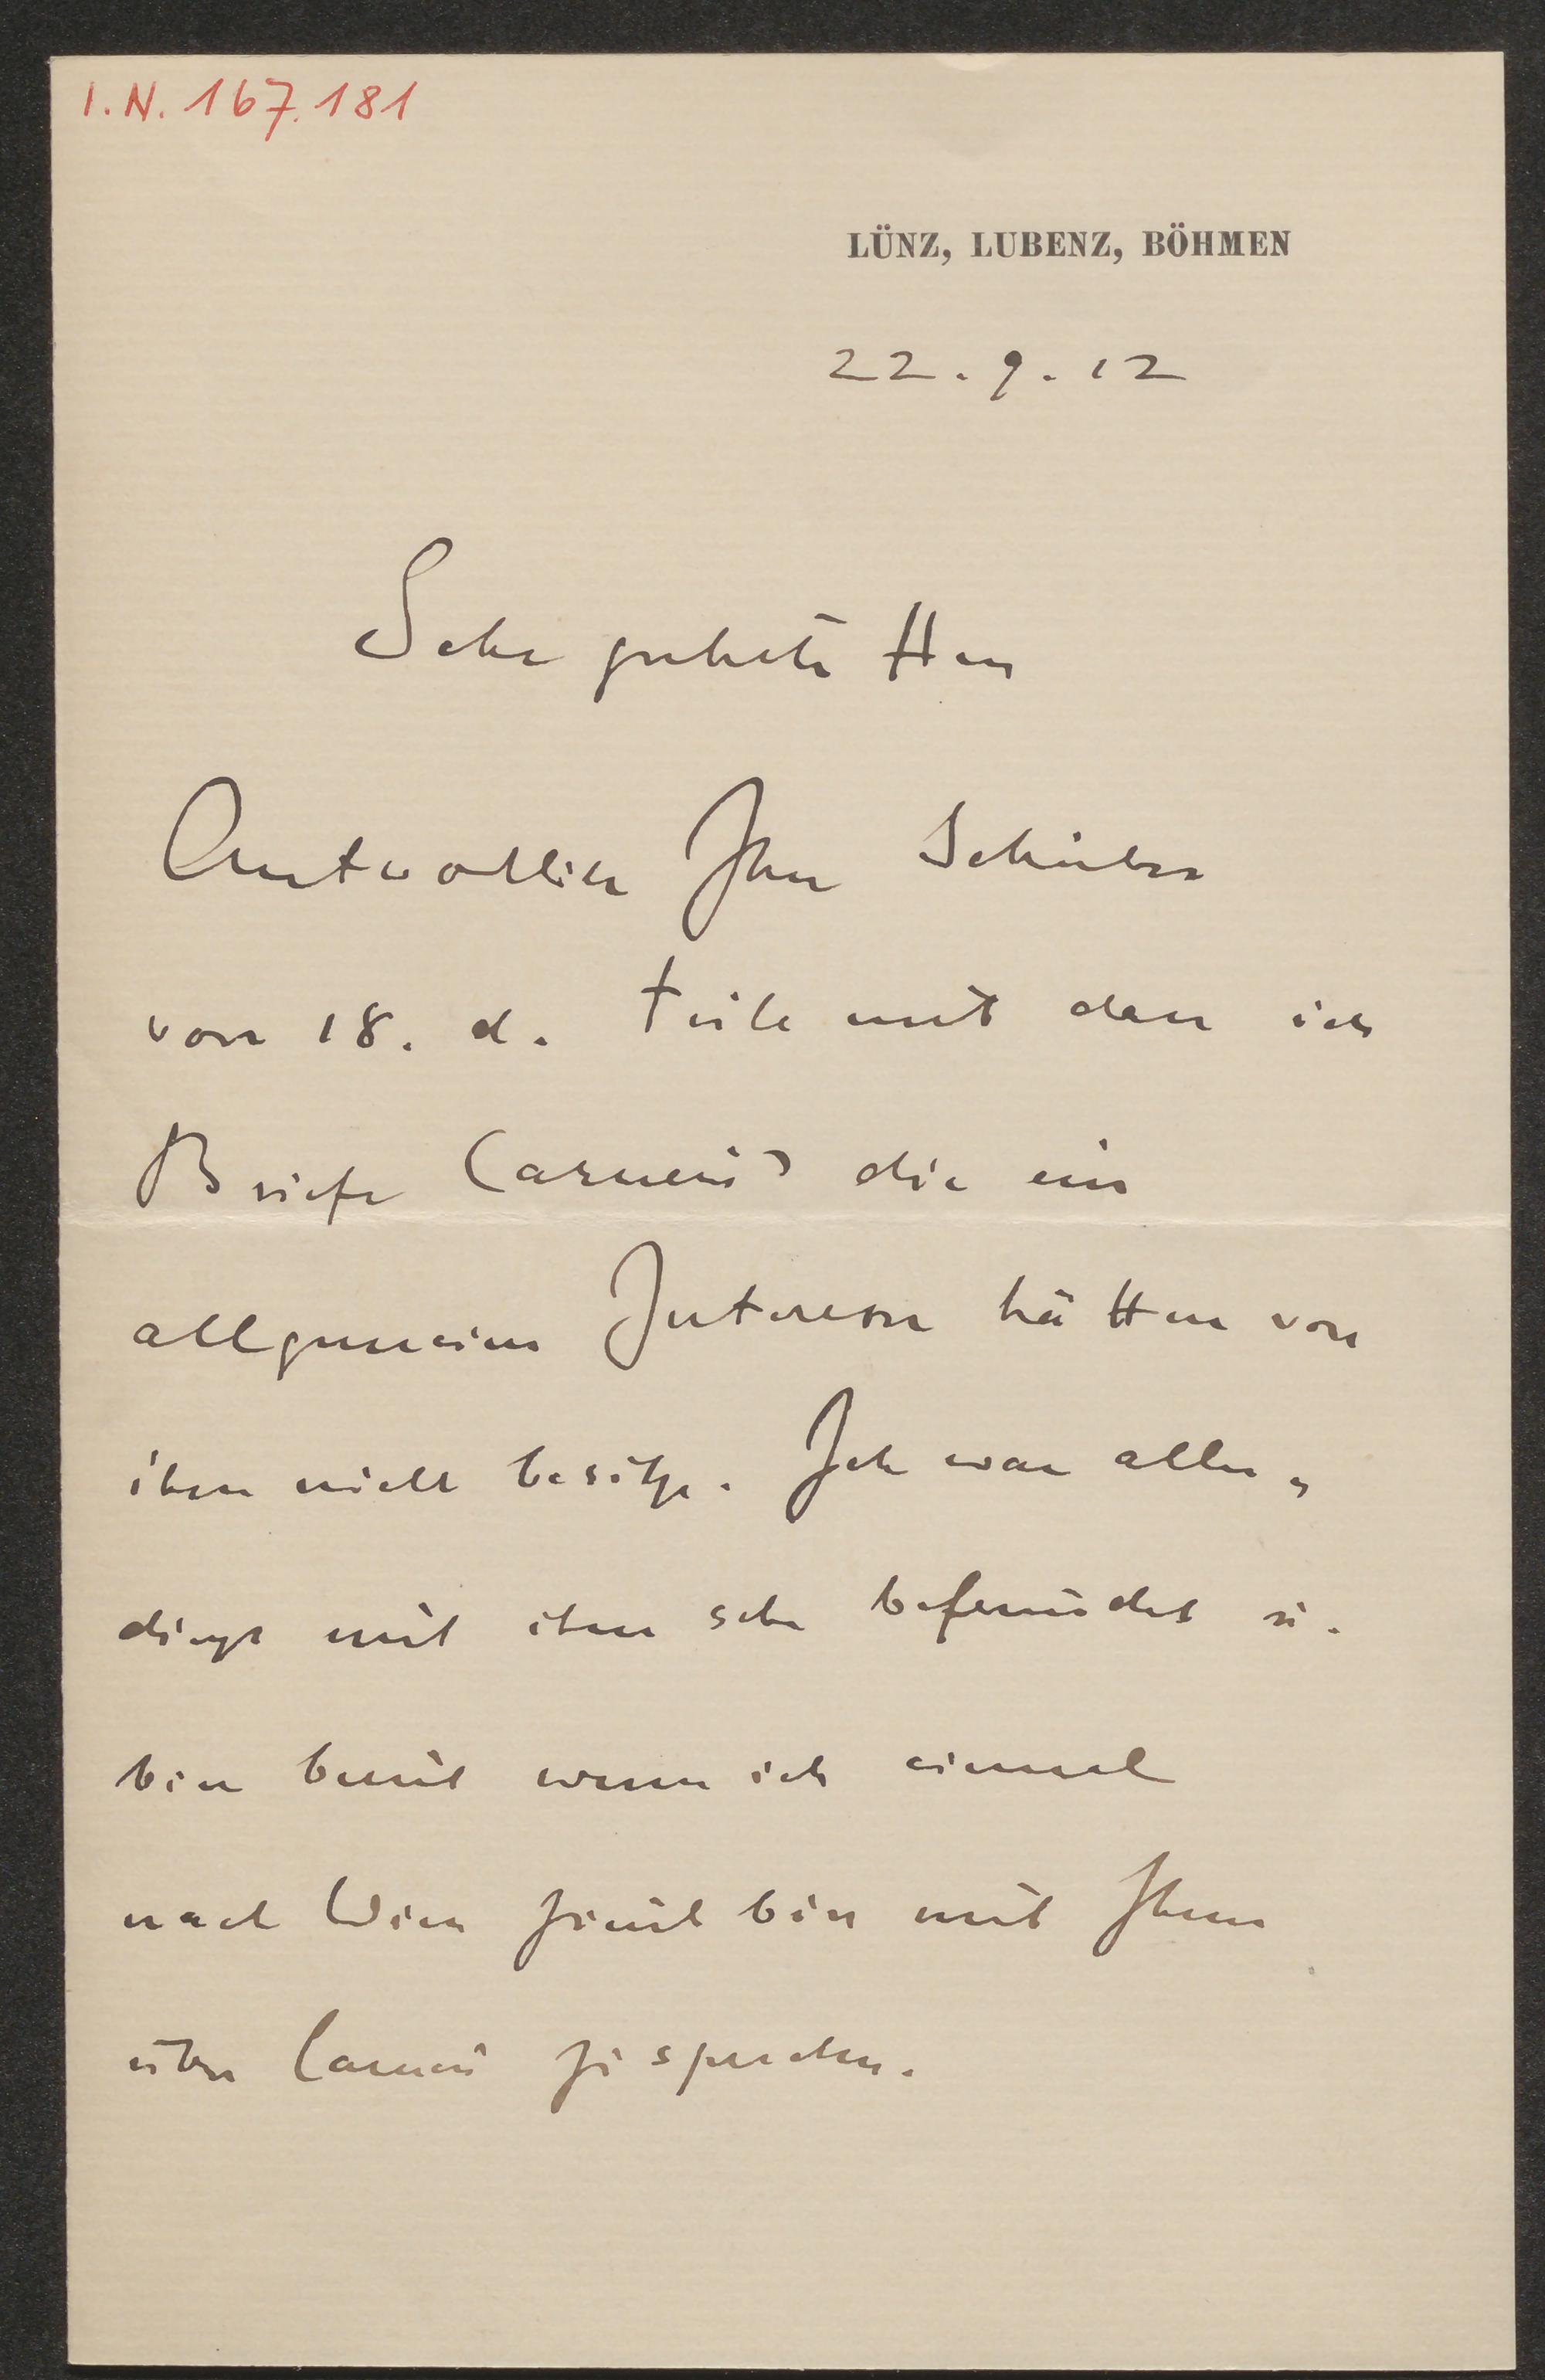 I.N. 167.181
LÜNZ, LUBENZ, BÖHMEN
22.9.12
Sehr geehrter Herr
Antwortlich Ihres Schreibens
vom 18. d. teile mit dass ich
Briefe Carneri's die ein
allgemeines Interesse hätten von
ihm nicht besitze. Ich war aller„
dings mit ihm sehr befreundet u.
bin bereit wenn ich einmal
nach Wien komme bin mit Ihnen
über Carneri zu sprechen.